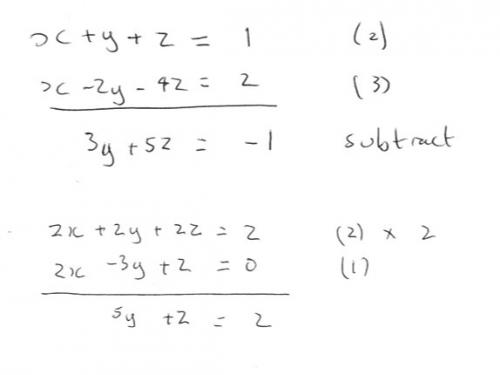 x + y + z = 1 (2)
x - 2y - 4z = 2 (3)
3y + 5z = -1 subtract
2x + 2y + 2z = 2 (2) x 2
2x - 3y + z = 0 (1)
5y + z = 2